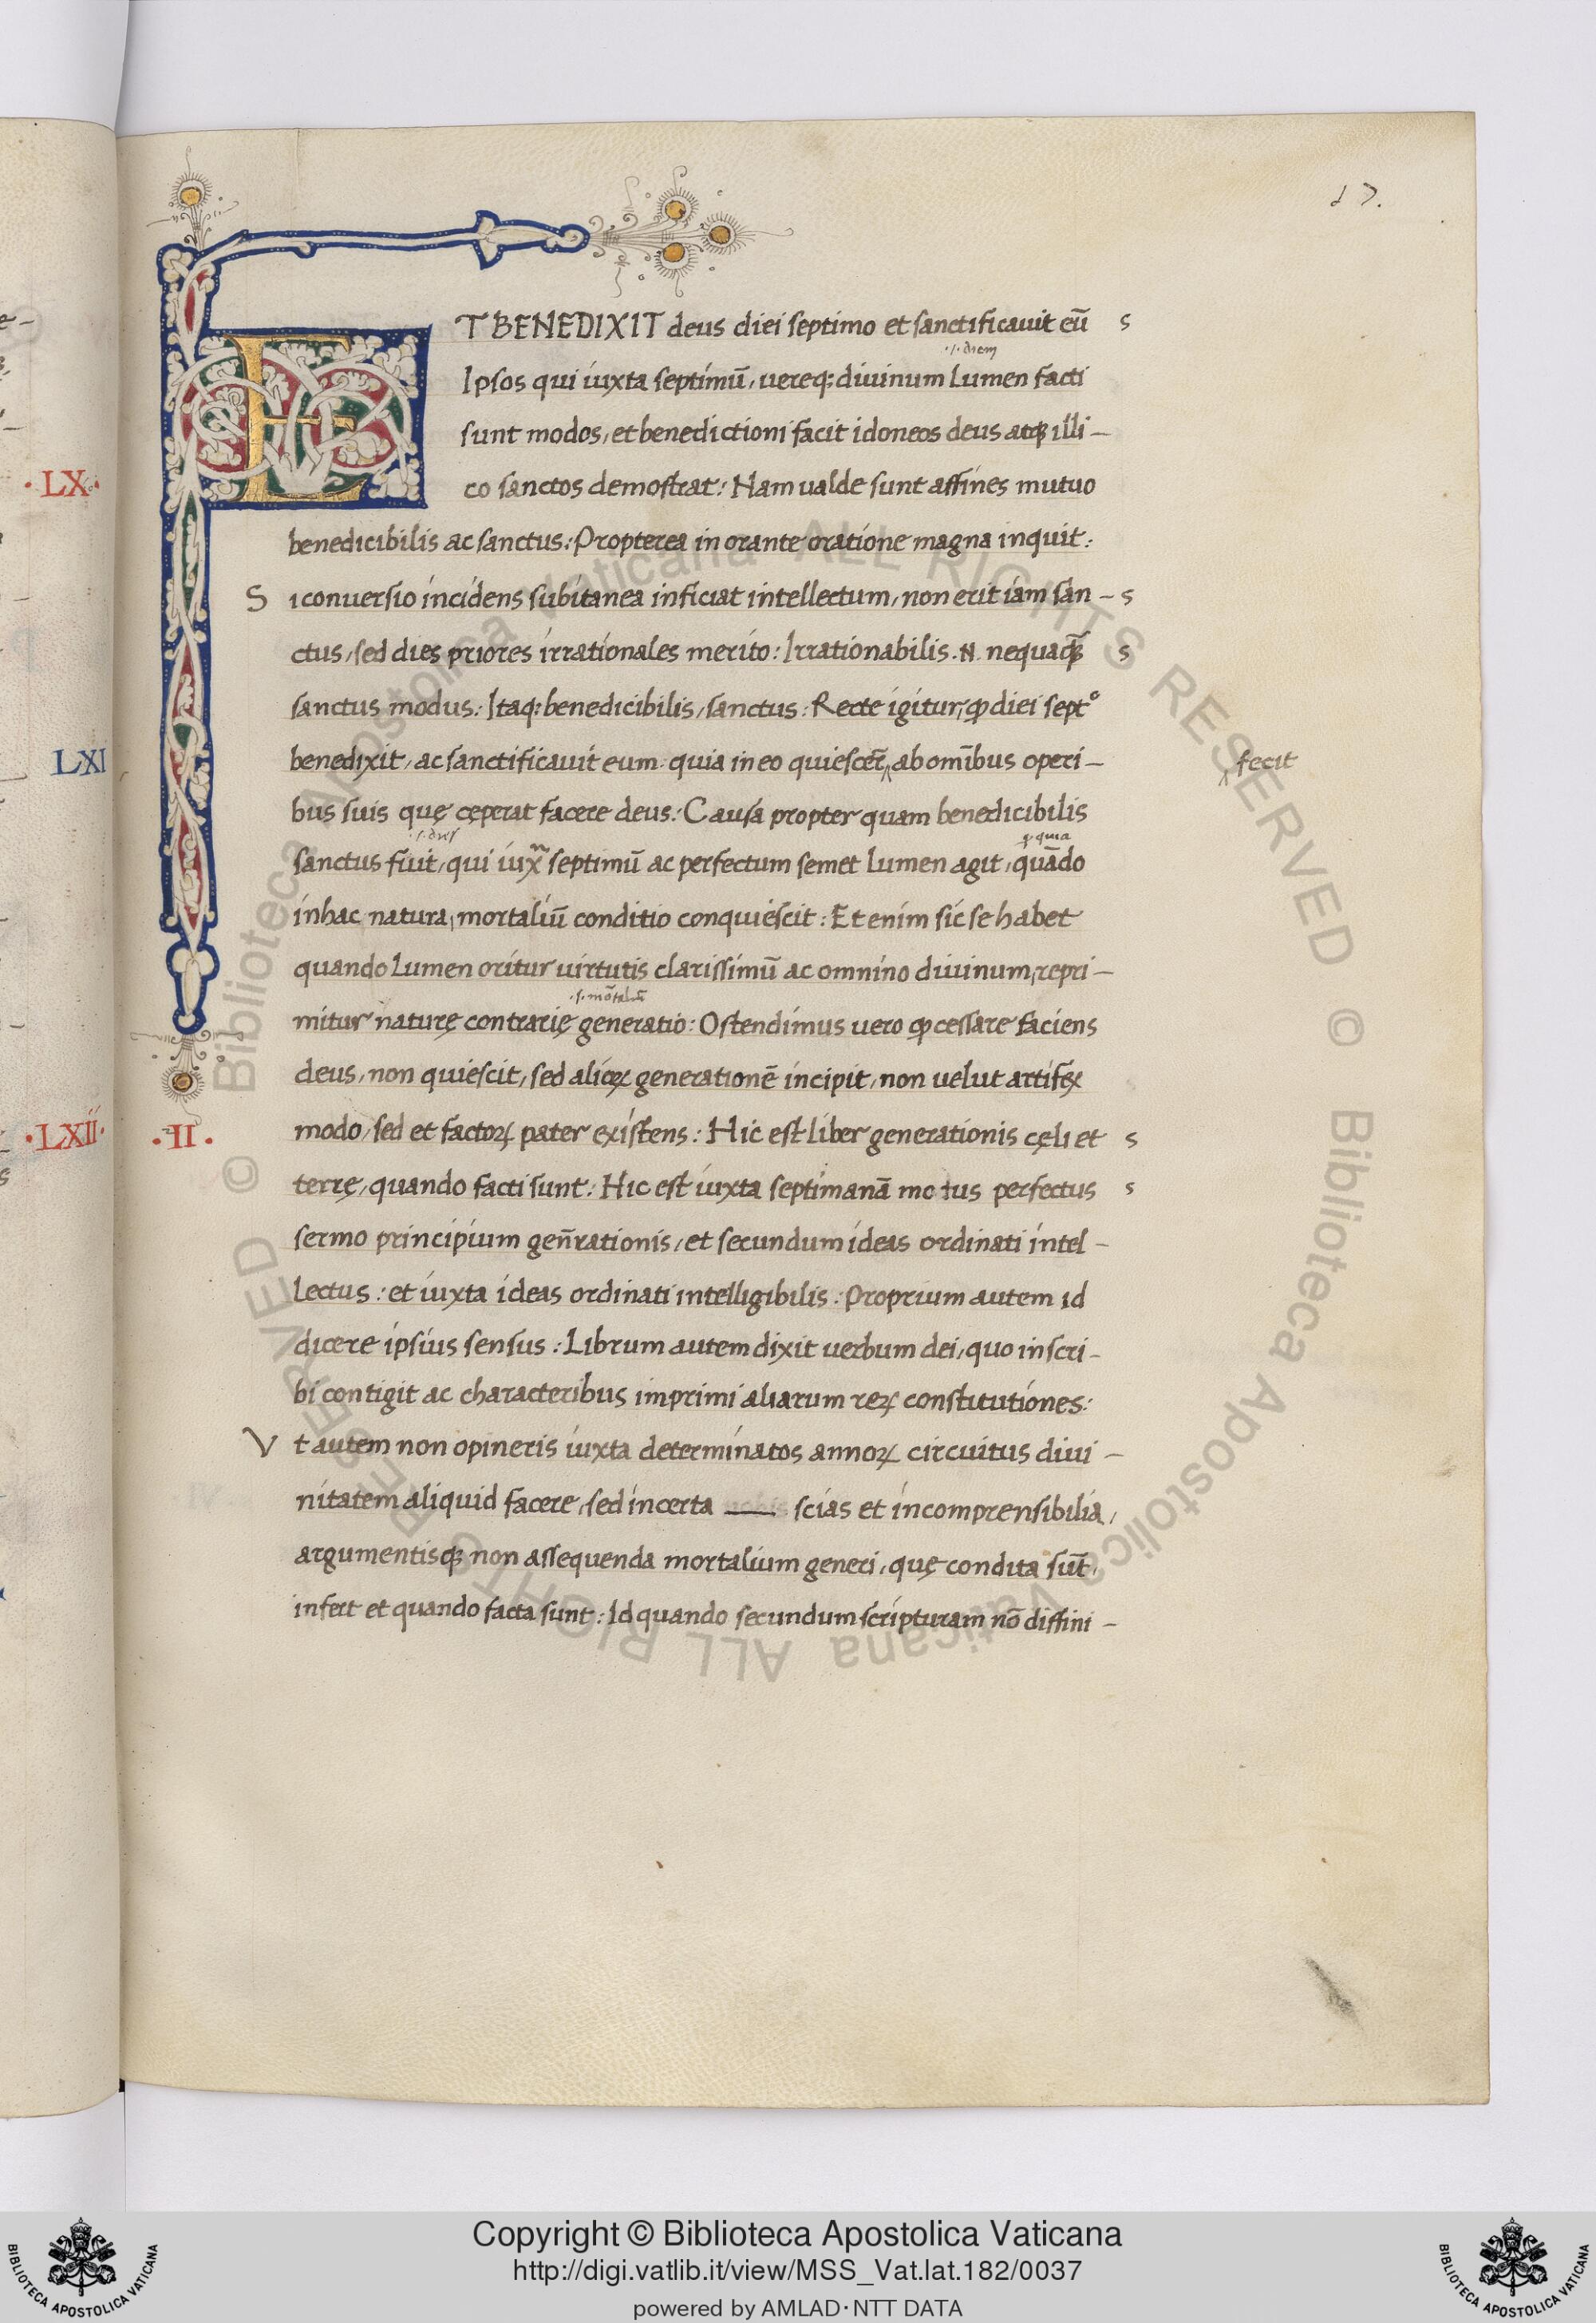 17.
ET BENEDIXIT deus diei septimo et sanctificauit eū s
.i. diem
Ipsos qui iuxta septimū, uereq; diuinum lumen facti
sunt modos, et benedictioni facit idoneos deus atq; illi–
co sanctos demostrat: Nam ualde sunt affines mutuo
benedicibilis ac sanctus: Propterea in orante oratione magna inquit:
Si conuersio incidens subitanea inficiat intellectum, non erit iam san– s
ctus, sed dies priores irrationales merito: Irrationabilis .N. nequaq̄; s
sanctus modus: Itaq; benedicibilis, sanctus: Recte igitur, ꝙ diei septº
benedixit, ac sanctificauit eum quia in eo quiescer̄ ‸ ab om̄ibus operi– ‸ fecit
bus suis quę cęperat facere deus: Causa propter quam benedicibilis
.i. dies ꝙ quia
sanctus fiut, qui iuxͫ septimū ac perfectum semet lumen agit, quādo
in hac natura, mortaliū conditio conquiescit: Et enim sic se habet
quando lumen oritur uirtutis clarissimū ac omnino diuinum, repri–
.s. mōtaliū
mitur naturę contrarię generatio: Ostendimus uero ꝙ cessare faciens
deus, non quiescit, sed alioꝝ generationē incipit, non uelut artifex
modo, sed et factoꝝ pater existens: Hic est liber generationis cęli et s
terrę, quando facti sunt: Hic est iuxta septimanā motus perfectus s
sermo principium gen̄rationis, et secundum ideas ordinati intel–
lectus: et iuxta ideas ordinati intelligibilis: Proprium autem id
dicere ipsius sensus: Librum autem dixit uerbum dei, quo inscri–
bi contigit ac characteribus imprimi aliarum reꝝ constitutiones:
Vt autem non opineris iuxta determinatos annoꝝ circuitus diui–
nitatem aliquid facere, sed incerta scias et incomprensibilia,
argumentisq; non assequenda mortalium generi, quę condita sūt,
infert et quando facta sunt: Id quando secundum scripturam nō diffini–
·LX·
LXI
·LXII·
·II·
© Biblioteca Apostolica Vaticana ALL RIGHTS RESERVED © Biblioteca Apostolica Vaticana ALL RIGHTS RESERVED
Copyright © Biblioteca Apostolica Vaticana
http://digi.vatlib.it/view/MSS_Vat.lat.182/0037
powered by AMLAD·NTT DATA
BIBLIOTECA APOSTOLICA VATICANA
BIBLIOTECA APOSTOLICA VATICANA